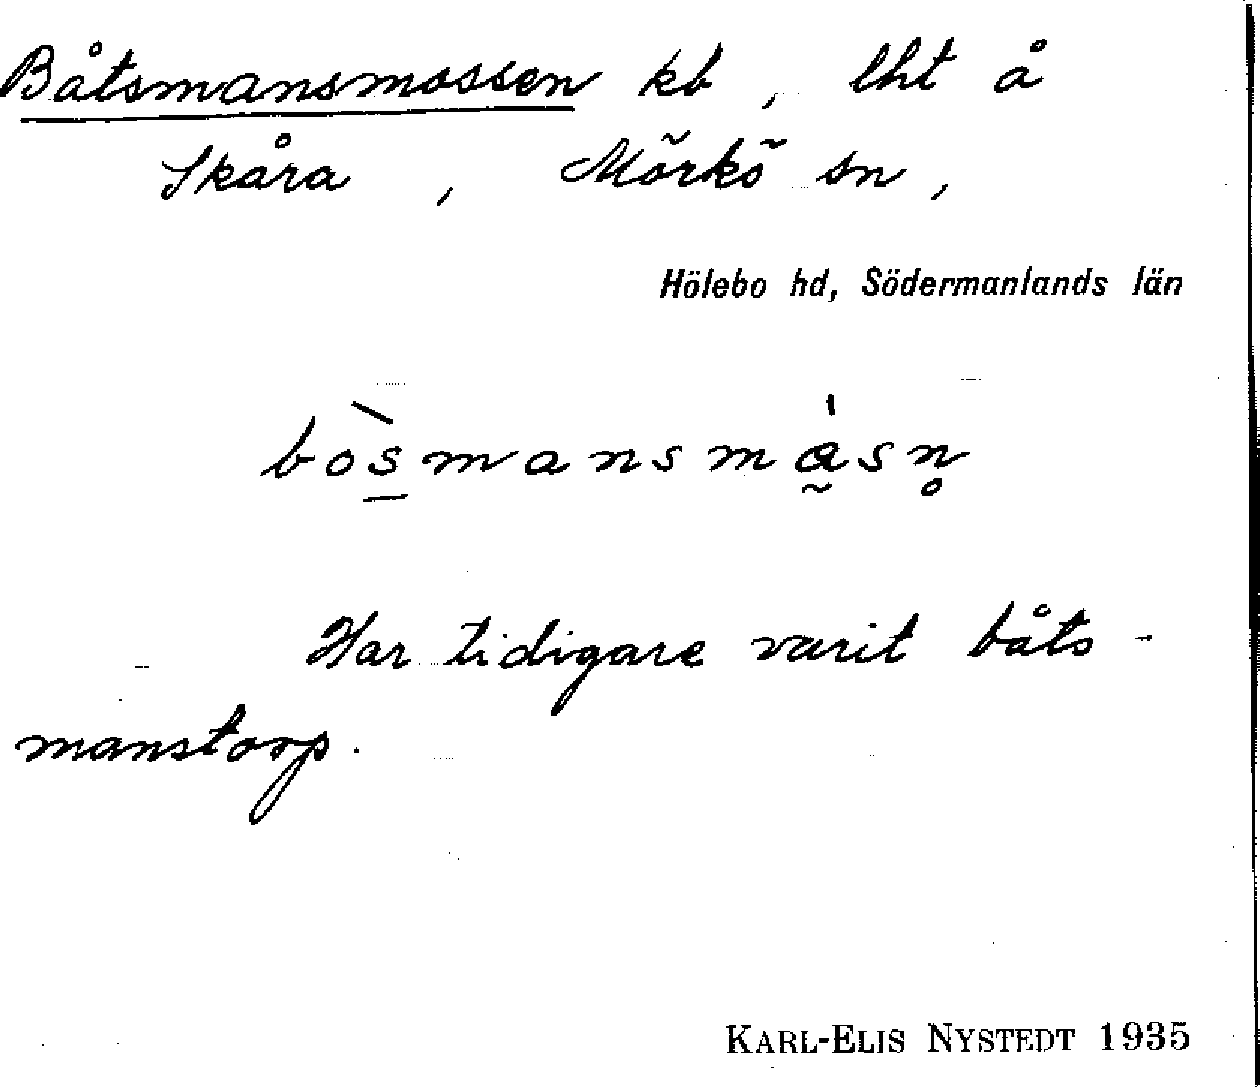 Båtsmansmossen kb, lht å
Skåra, Mörkö sn,
Hölebo hd, Södermanlands län
bos̲̀mansma̰̍sn̥
Har tidigare varit båts-
manstorp.
KARL-ELIS NYSTEDT 1935